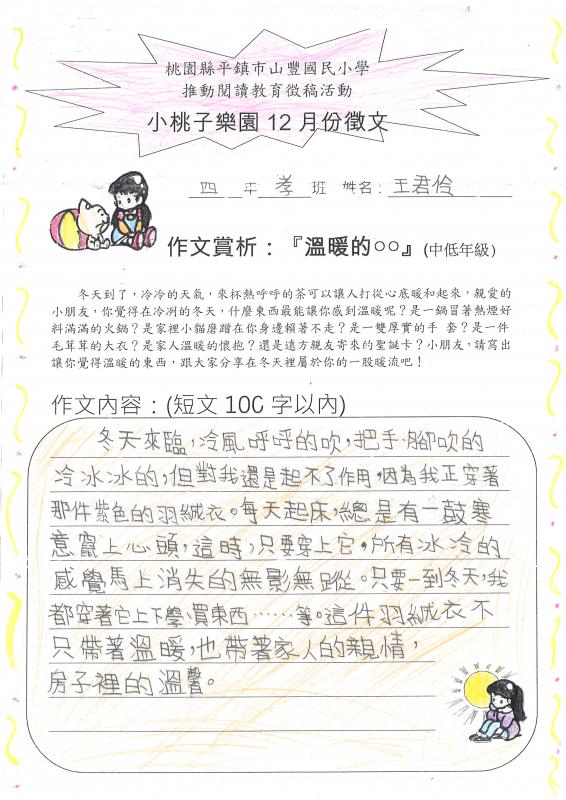 桃園縣平鎮市山豐國民小學
推動閱讀教育徵稿活動
小桃子樂園 12 月份徵文
四 年 孝 班 姓名：王君伶
作文賞析：『溫暖的○○』(中低年級)
冬天到了，冷冷的天氣，來杯熱呼呼的茶可以讓人打從心底暖和起來，親愛的
小朋友，你覺得在冷冽的冬天，什麼東西最能讓你感到溫暖呢？是一鍋冒著熱煙好
料滿滿的火鍋？是家裡小貓磨蹭在你身邊賴著不走？是一雙厚實的手 套？是一件
毛茸茸的大衣？是家人溫暖的懷抱？還是遠方親友寄來的聖誕卡？小朋友，請寫出
讓你覺得溫暖的東西，跟大家分享在冬天裡屬於你的一股暖流吧！
作文內容：(短文 100 字以內)
冬天來臨，冷風呼呼的吹，把手、腳吹的
冷冰冰的，但對我還是起不了作用，因為我正穿著
那件紫色的羽絨衣。每天起床，總是有一鼓寒
意竄上心頭，這時，只要穿上它，所有冰冷的
感覺馬上消失的無影無蹤。只要一到冬天，我
都穿著它上下學、買東西……等。這件羽絨衣不
只帶著溫暖，也帶著家人的親情，
房子裡的溫馨。